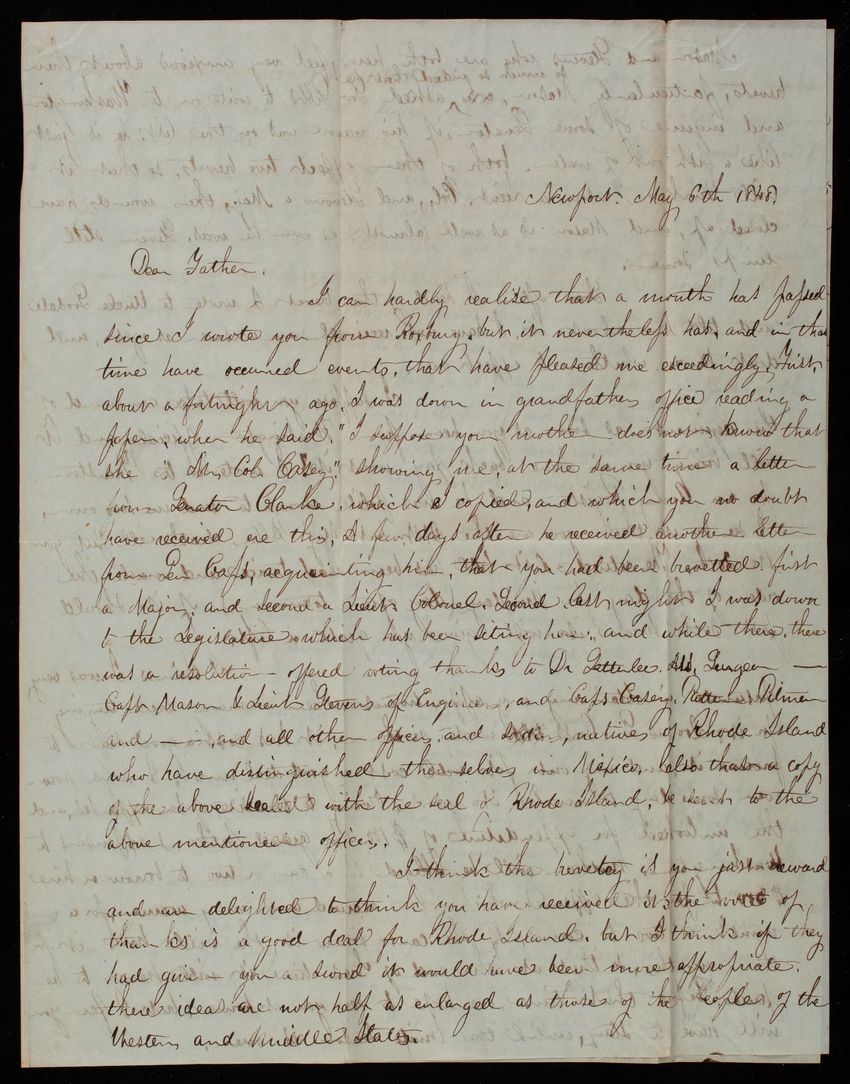 Newport. May 6th 1848.
Dear Father.
I can hardly realise that a month has passed
since I wrote you from Roxbury. but it nevertheless has. and in that
time have occurred events. that have pleased me exceedingly. First.
about a fortnight ago. I was down in grandfathers office reading a
paper, when he said. "I suppose you mother does not know that
she is Mrs. Col. Casey." showing me, at the same time a letter
from Senator Clarke, which I copied, and which you no doubt
have received ere this, A few days after he received another letter
from Gen Cass, acquainting him, that you had been brevetted first
a Major, and second a Lieut Colonel. Second. Last night I was down
to the Legislature which has been siting here, and while there, there
was a resolution offered voting thanks to Dr Satterlee Surgeon —
Capt Mason & Lieut Stevens of Engineers, and Capts Casey, Pitman
and — , and all other officers, and soldiers, natives of Rhode Island
who have distinguished themselves in Mexico, also that a copy
of the above sealed with the seal of Rhode Island, be sent to the
above mentioned officers.
I think the brevetcy is you just reward
and am delighted to think you have received it. the vote of
thanks is a good deal for Rhode Island. but I think if they
had give you a sword it would have been more appropriate.
there ideas are not half as enlarged as those of the people, of the
Western and Middle States.